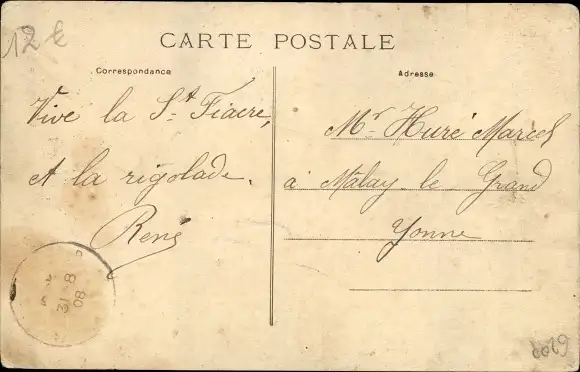 12 €
CARTE POSTALE
Correspondance
Adresse
Vive la St Fiacre,
et la rigolade.
René
Mr Huré Marcel
à Malay le Grand
Yonne
31 - 8
08